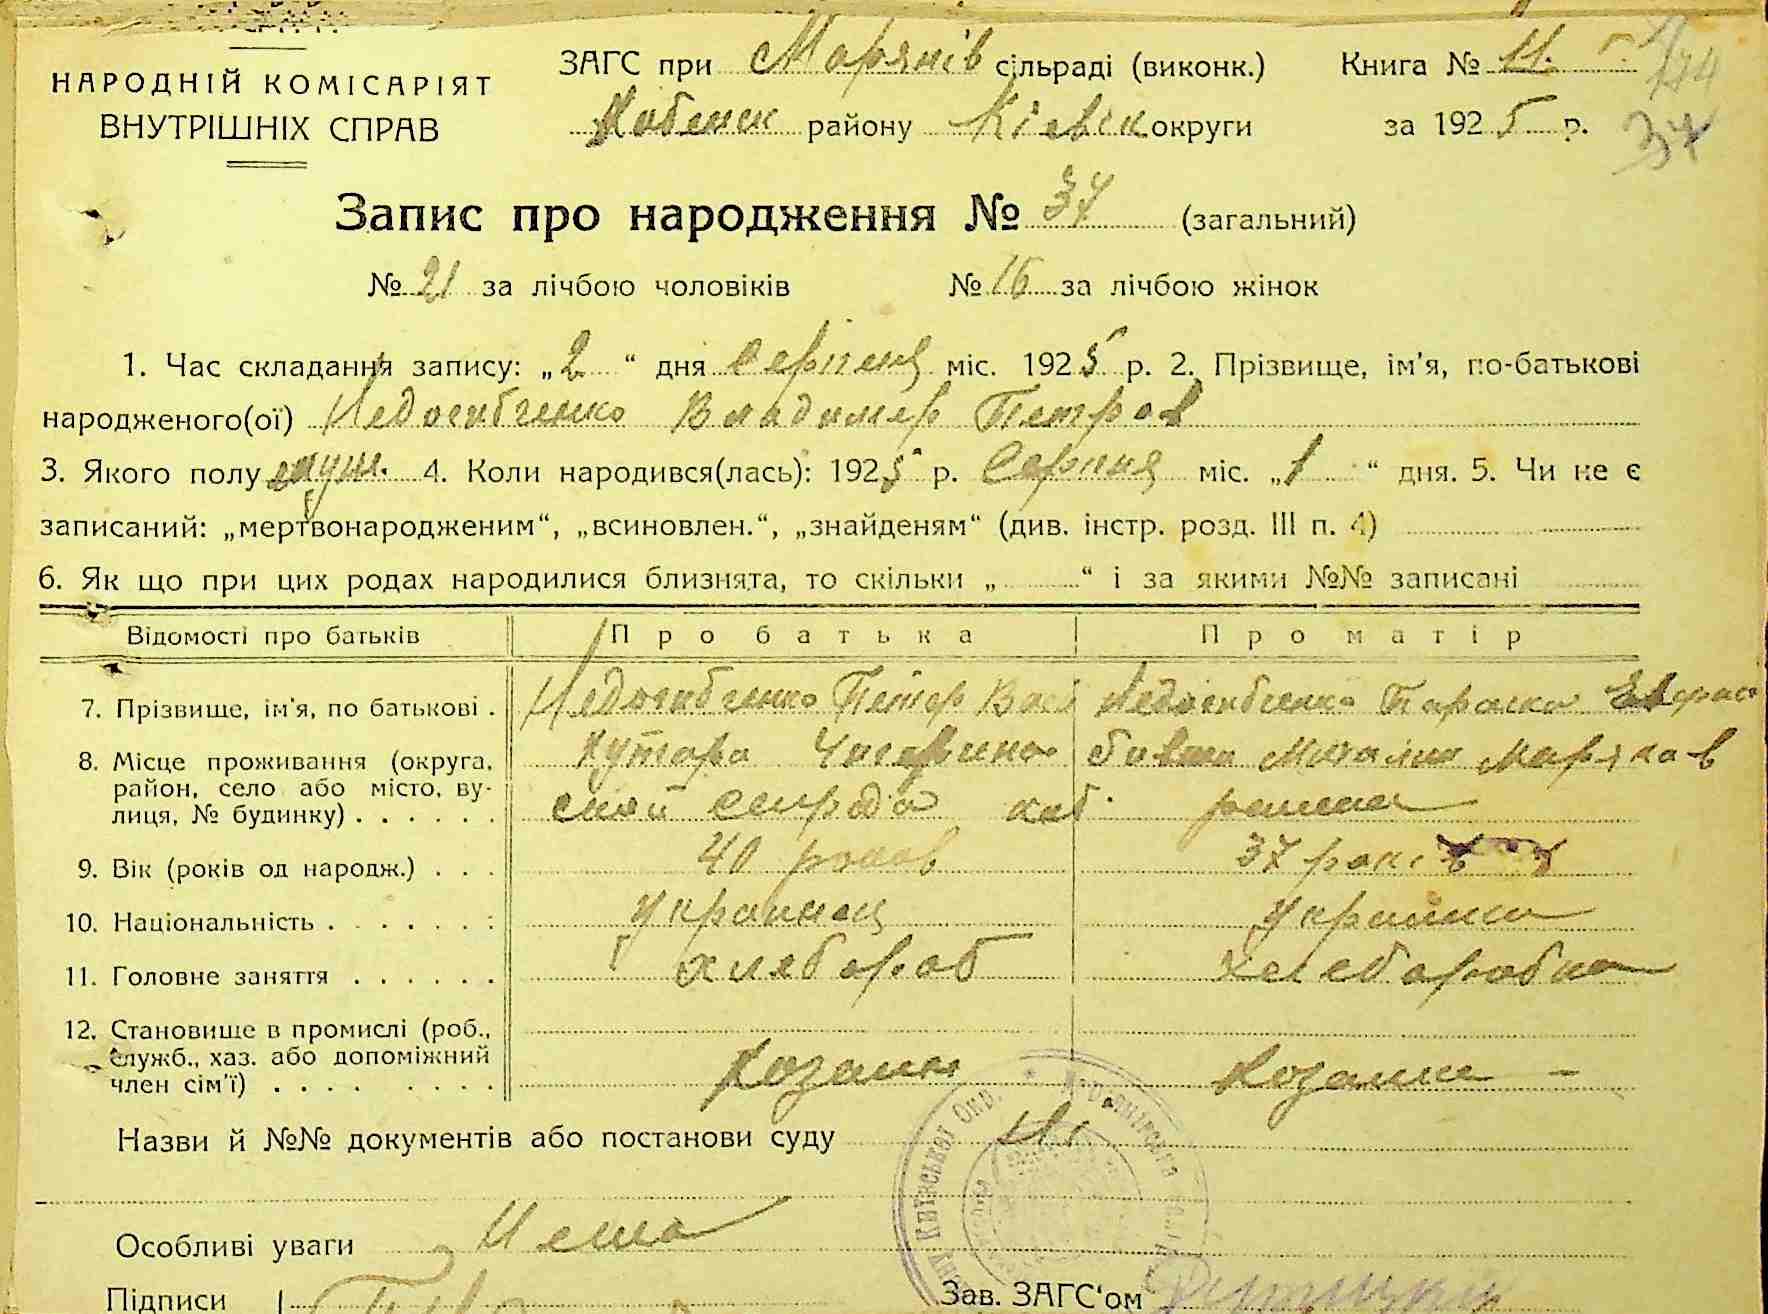 НАРОДНІЙ КОМІСАРІЯТ
ВНУТРІШНІХ СПРАВ
ЗАГС при Марянів сільраді (виконк.) Книга № 11.
району Кіевск округи за 1925 р.
34
Запис про народження № 37 (загальний)
№ 21 за лічбою чоловіків № 16 за лічбою жінок
1. Час складання запису: „2“ дня серпеня міс. 1925 р. 2. Прізвище, ім'я, по-батькові
народженого(ої) Владимер Петров
3. Якого полу муж. 4. Коли народився(лась): 1925 р. Серпня міс. „1“ дня. 5. Чи не є
записаний: „мертвонародженим“, „всиновлен.“, „знайденям“ (див. інстр. розд. III п. 4)
6. Як що при цих родах народилися близнята, то скільки „ “ і за якими №№ записані
Відомості про батьків Про батька Про матір
7. Прізвище, ім'я, по батькові . Петер Вас Параска
8. Місце проживання (округа, район, село або місто, вулиця, № будинку) . . . . . . хутора
9. Вік (років од народж.) . . . 40 роков 37 років
10. Національність . . . . . . . Украинец Украинка
11. Головне заняття . . . . . . хлебороб хлеборобка
12. Становище в промислі (роб., служб., хаз. або допоміжний член сім'ї) . . . . . . . . Козаки Козачка –
Назви й №№ документів або постанови суду
Особливі уваги Нема
Підписи Зав. ЗАГС'ом
Київської Окр.